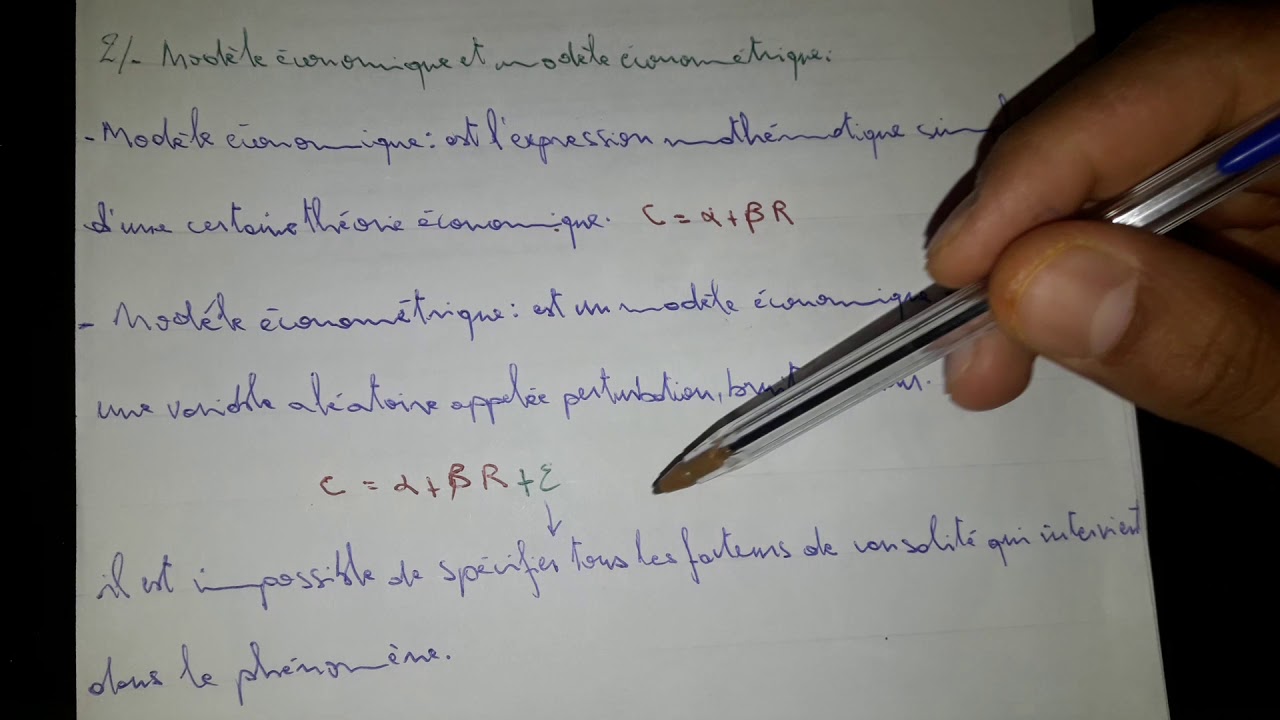 2/- Modèle économique et modèle économétrique:
- Modèle économique: est l'expression mathématique
d'une certaine théorie économique. C = α + βR
- Modéle économétrique: est un modèle économique
une variable aléatoire appelée perturbation, bruit
C = α + βR + ε
↓
il est impossible de spécifier tous les facteurs de consalité qui intervient
dans le phénomène.